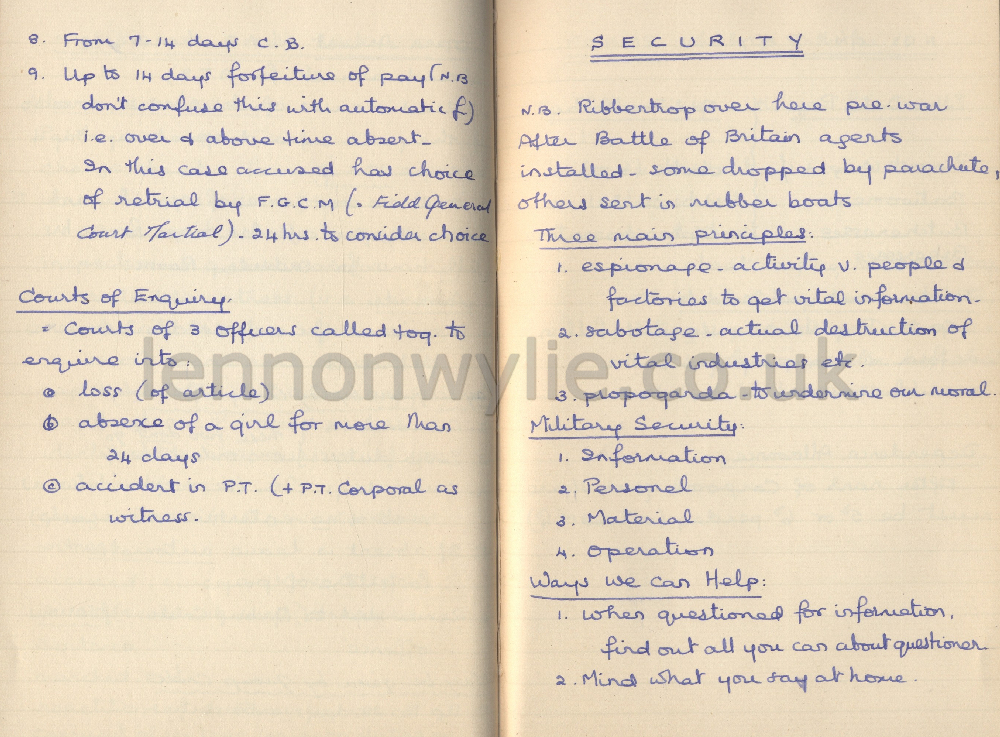 8. From 7-14 days C.B.
9. Up to 14 days forfeiture of pay (N.B
don't confuse this with automatic f)
i.e. over & above time absent-
In this case accused has choice
of retrial by F.G.C.M (= Field General
Court Martial). - 24 hrs. to consider choice
Courts of Enquiry.
= Courts of 3 officers called tog. to
enquire into:
a loss (of article)
b absence of a girl for more than
24 days
c accident in P.T. (+ P.T. Corporal as
witness.
SECURITY
N.B. Ribbertrop over here pre-war
After Battle of Britain agents
installed - some dropped by parachute,
others sent in rubber boats
Three main principles:
1. espionage - activity v. people &
factories to get vital information.
2. sabotage - actual destruction of
vital industries etc.
3. propoganda - to undermine our moral.
Military Security:
1. Information
2. Personel
3. Material
4. Operation
Ways We Can Help:
1. When questioned for information,
find out all you can about questioner.
2. Mind what you say at home.
lennonwylie.co.uk